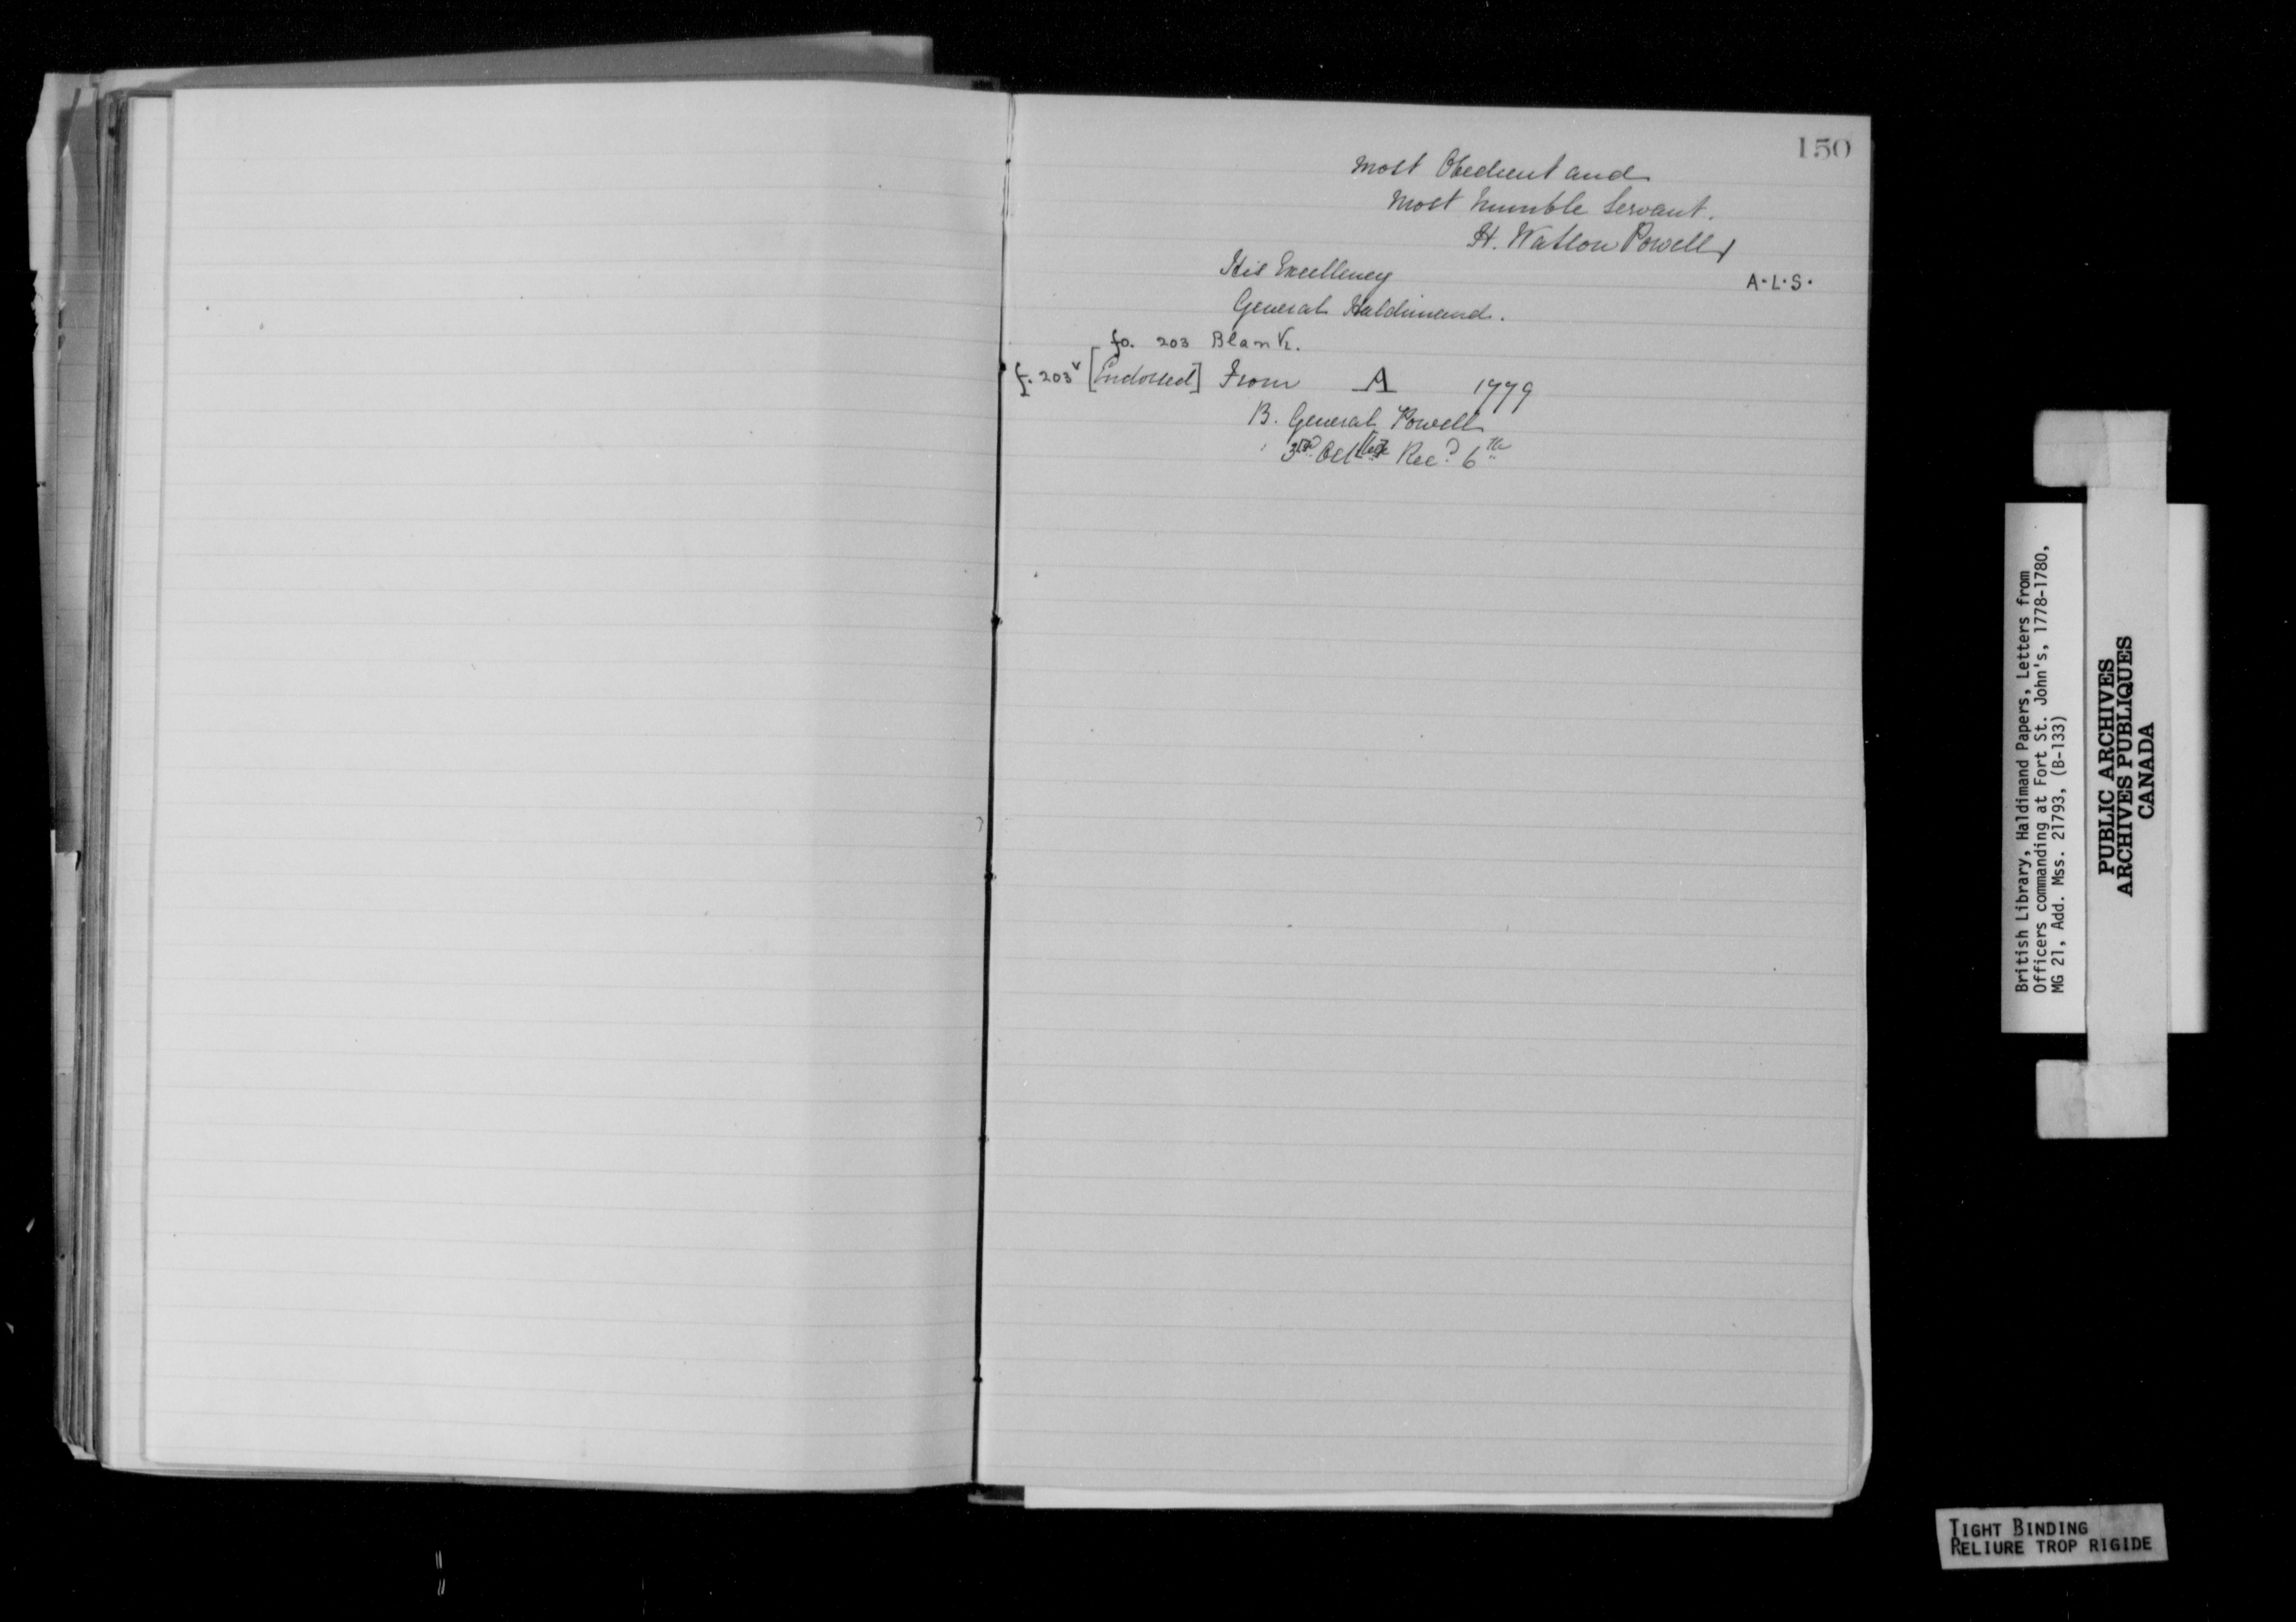 150
Most Obedient and
Most humble Servant.
H. Watson Powell
A.L.S.
His Excellency
General Haldimand.
fo. 203 Blank.
f. 203v [Endorsed] From A 1779
B. General Powell
3rd Oct Recd 6th
British Library, Haldimand Papers, Letters from
Officers commanding at Fort St. John's, 1778-1780,
MG 21, Add. Mss. 21793, (B-133)
PUBLIC ARCHIVES
ARCHIVES PUBLIQUES
CANADA
TIGHT BINDING
RELIURE TROP RIGIDE